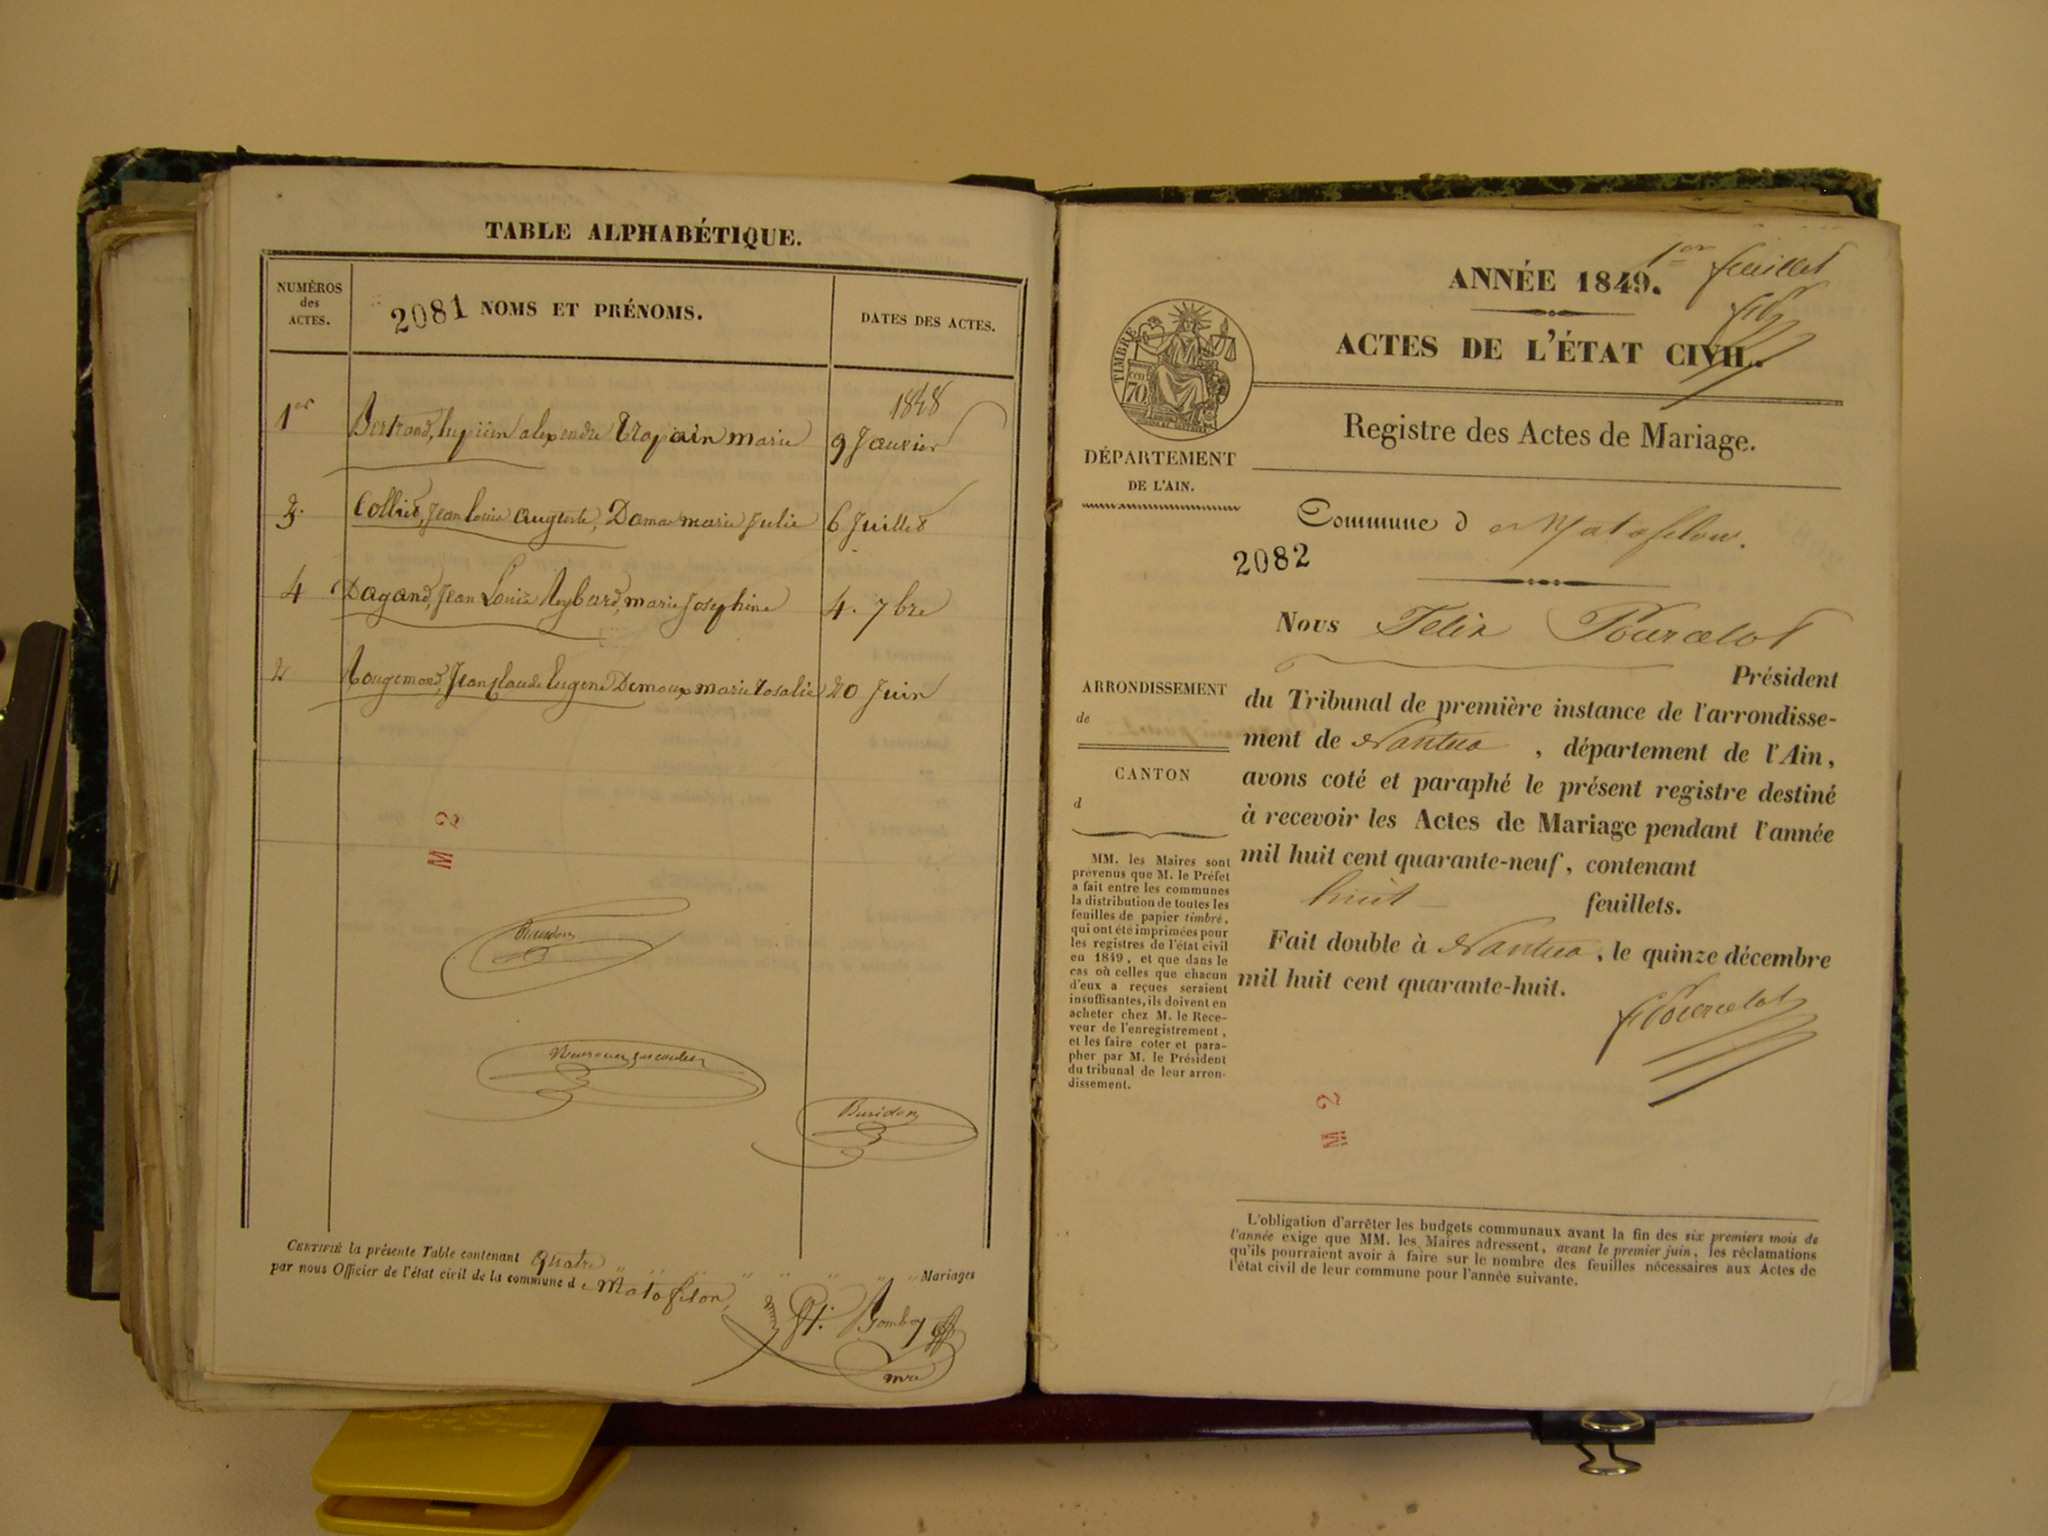 TABLE ALPHABÉTIQUE.
NUMÉROS
des
ACTES.
2081 NOMS ET PRÉNOMS.
DATES DES ACTES.
1848
1er Bertrand, alexendre marie 9 Janvier
3. Jean Louis auguste, Damas marie Julie 6 Juillet
4 Dagand, Jean Louis Reybard, marie Josephine 4. 7bre
2 Rougemond, Jean Claude Eugene Demoux marie rosalie 20 Juin
M 2
Buridon
CERTIFIÉ la présente Table contenant quatre Mariages
par nous Officier de l'état civil de la commune de Matafelon,
mre
1er feuillet
ANNÉE 1849.
ACTES DE L'ÉTAT CIVIL.
TIMBRE
70
Registre des Actes de Mariage.
DÉPARTEMENT
DE L'AIN.
Commune de Matafelon.
2082
Nous Felix Pourcelot
Président
du Tribunal de première instance de l'arrondisse-
ment de Nantua, département de l'Ain,
avons coté et paraphé le présent registre destiné
à recevoir les Actes de Mariage pendant l'année
mil huit cent quarante-neuf, contenant
huit feuillets.
Fait double à Nantua, le quinze décembre
mil huit cent quarante-huit.
FPourcelot
ARRONDISSEMENT
de
CANTON
d
MM. les Maires sont
prévenus que M. le Préfet
a fait entre les communes
la distribution de toutes les
feuilles de papier timbré,
qui ont été imprimées pour
les registres de l'état civil
en 1849, et que dans le
cas où celles que chacun
d'eux a reçues seraient
insuffisantes, ils doivent en
acheter chez M. le Rece-
veur de l'enregistrement,
et les faire coter et para-
pher par M. le Président
du tribunal de leur arron-
dissement.
M 2
L'obligation d'arrêter les budgets communaux avant la fin des six premiers mois de
l'année exige que MM. les Maires adressent, avant le premier juin, les réclamations
qu'ils pourraient avoir à faire sur le nombre des feuilles nécessaires aux Actes de
l'état civil de leur commune pour l'année suivante.